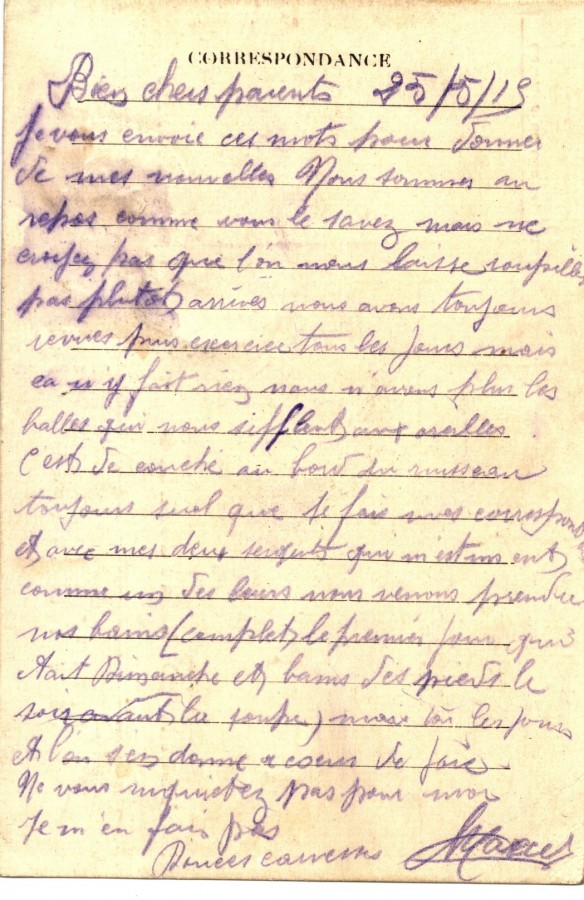 CORRESPONDANCE
Bien chers parents 25/5/15
Je vous envoie ces mots pour donner
de mes nouvelles Nous sommes au
repos comme vous le savez mais ne
croyez pas que l'on nous laisse roupiller
pas plutot arrivés nous avons toujours
revues puis exercice tous les jours mais
ca n'y fait rien nous n'avons plus les
balles qui nous sifflent aux oreilles
C'est de couché au bord du ruisseau
toujours seul que je fais mes correspond
et avec mes deux sergents qui m'estiment
comme un des leurs nous venons prendre
nos bains (complet le premier jour qui
était Dimanche et bains des pieds le
soir avant la soupe) les jours
et l'on s'en donne a coeur de joie
Ne vous inquietez pas pour moi
Je m'en fais pas
Douces caresses Marcel